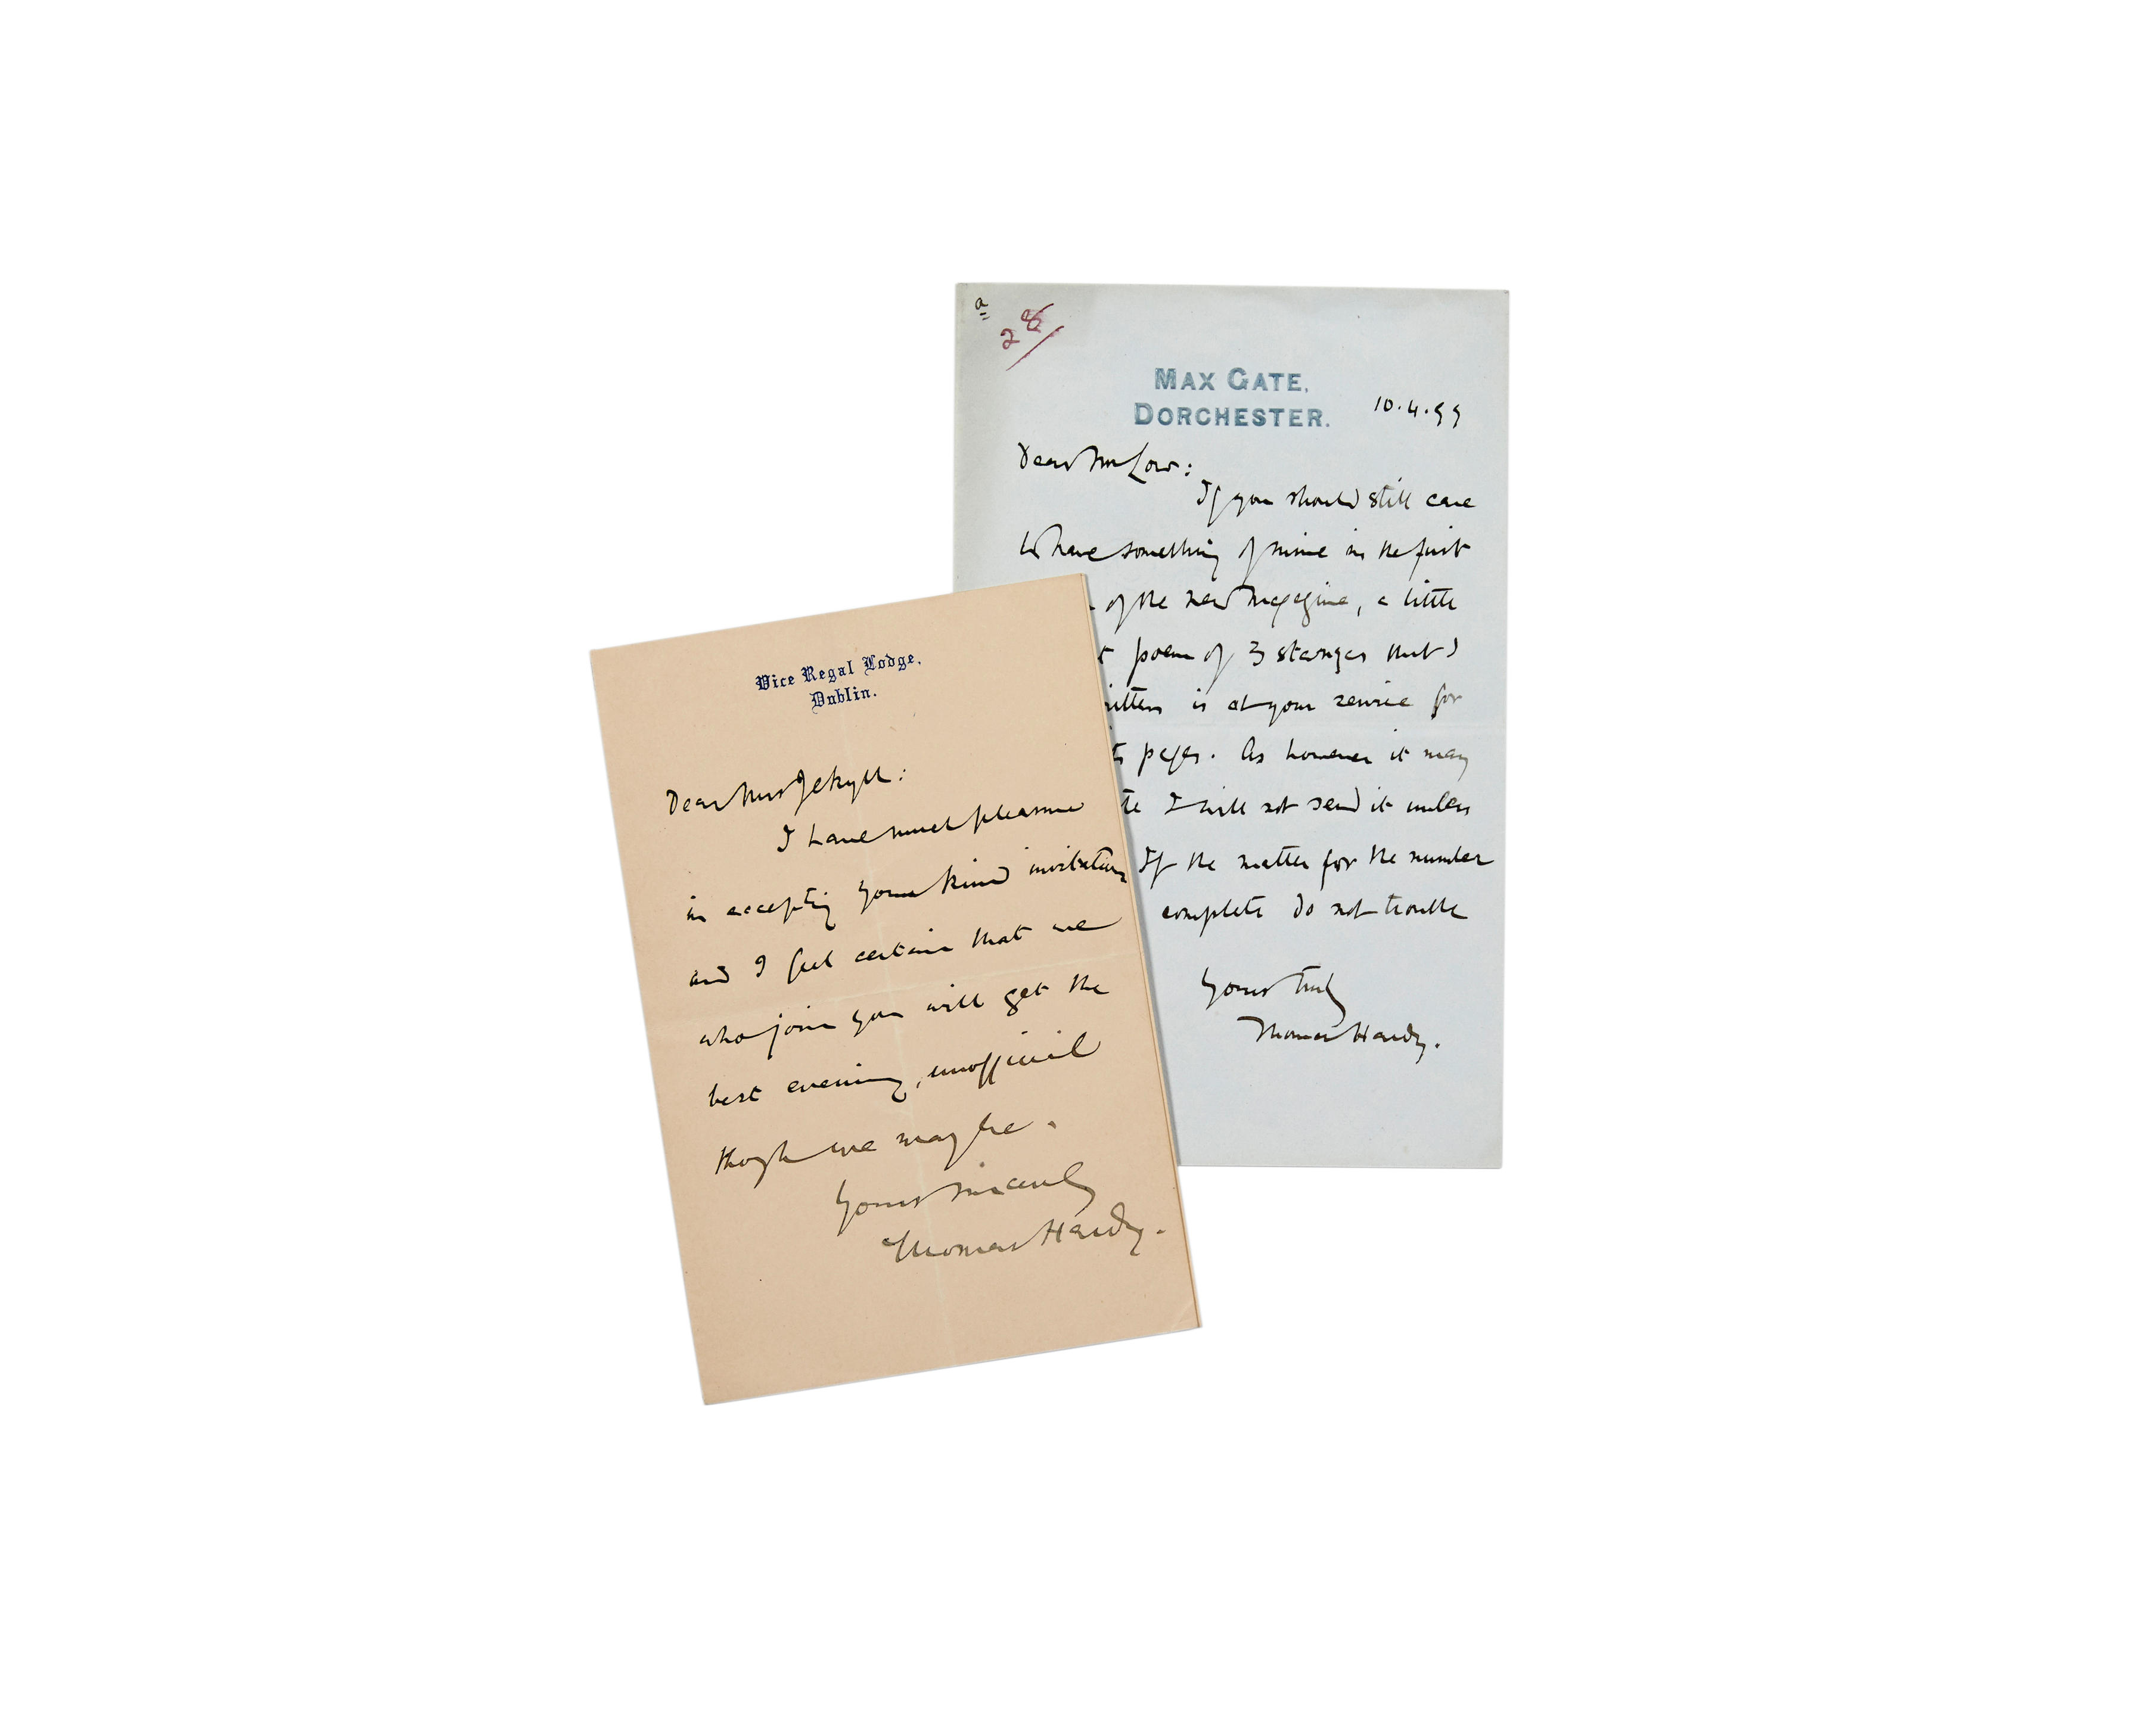 Vice Regal Lodge,
Dublin.
Dear Mrs Jekyll:
I have much pleasure
in accepting your kind invitation
and I feel certain that we
who join you will get the
best evening, unofficial
though we may be.
Yours sincerely
Thomas Hardy.
a
MAX GATE,
DORCHESTER.
10.4.99
Dear Mr Low:
If you should still care
to have something of mine in the first
of the new magazine, a little
poem of 3 stanzas that I
is at your service for
pages. As however it may
I will not send it unless
If the matter for the number
complete do not trouble
Yours truly
Thomas Hardy.